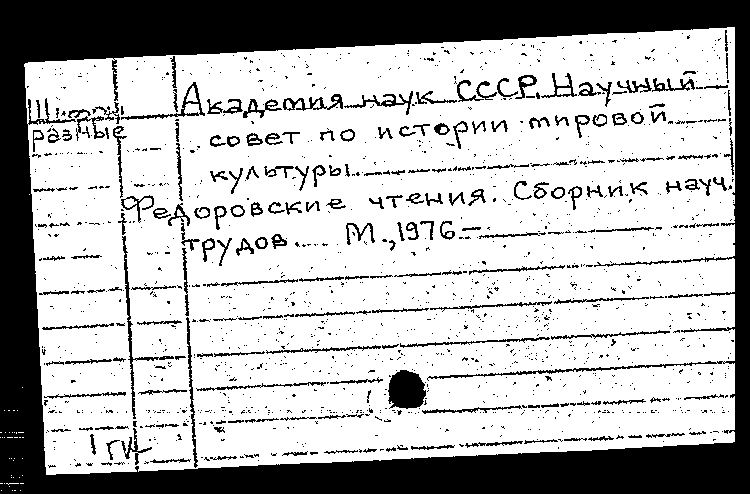 Шифры
разные
Академия наук СССР. Научный
совет по истории мировой
культуры.
Федоровские чтения. Сборник науч.
трудов. М., 1976 —
1 гк